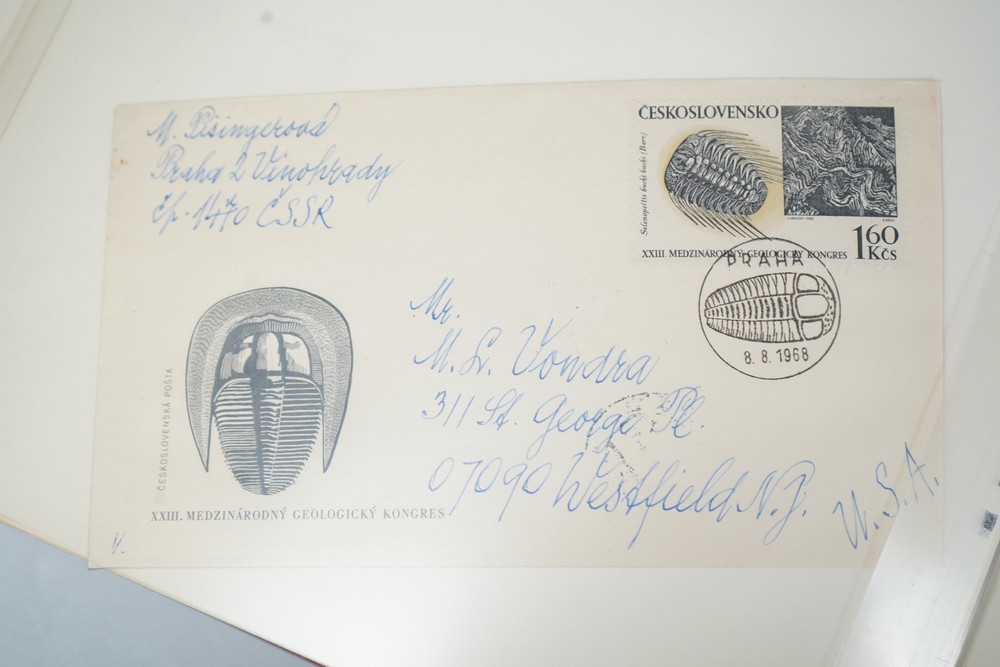 M. Pisingerová
Praha 2 Vinohrady
čp. ČSSR
ČESKOSLOVENSKO
Selenopeltis buchi buchi (Barr)
XXIII. MEDZINÁRODNÝ GEOLOGICKÝ KONGRES
1 60 Kčs
PRAHA
8. 8. 1968
Mr.
M. Vondra
311 St. George Pl.
07090 Westfield N.J.
U.S.A.
ČESKOSLOVENSKÁ POŠTA
XXIII. MEDZINÁRODNÝ GEOLOGICKÝ KONGRES